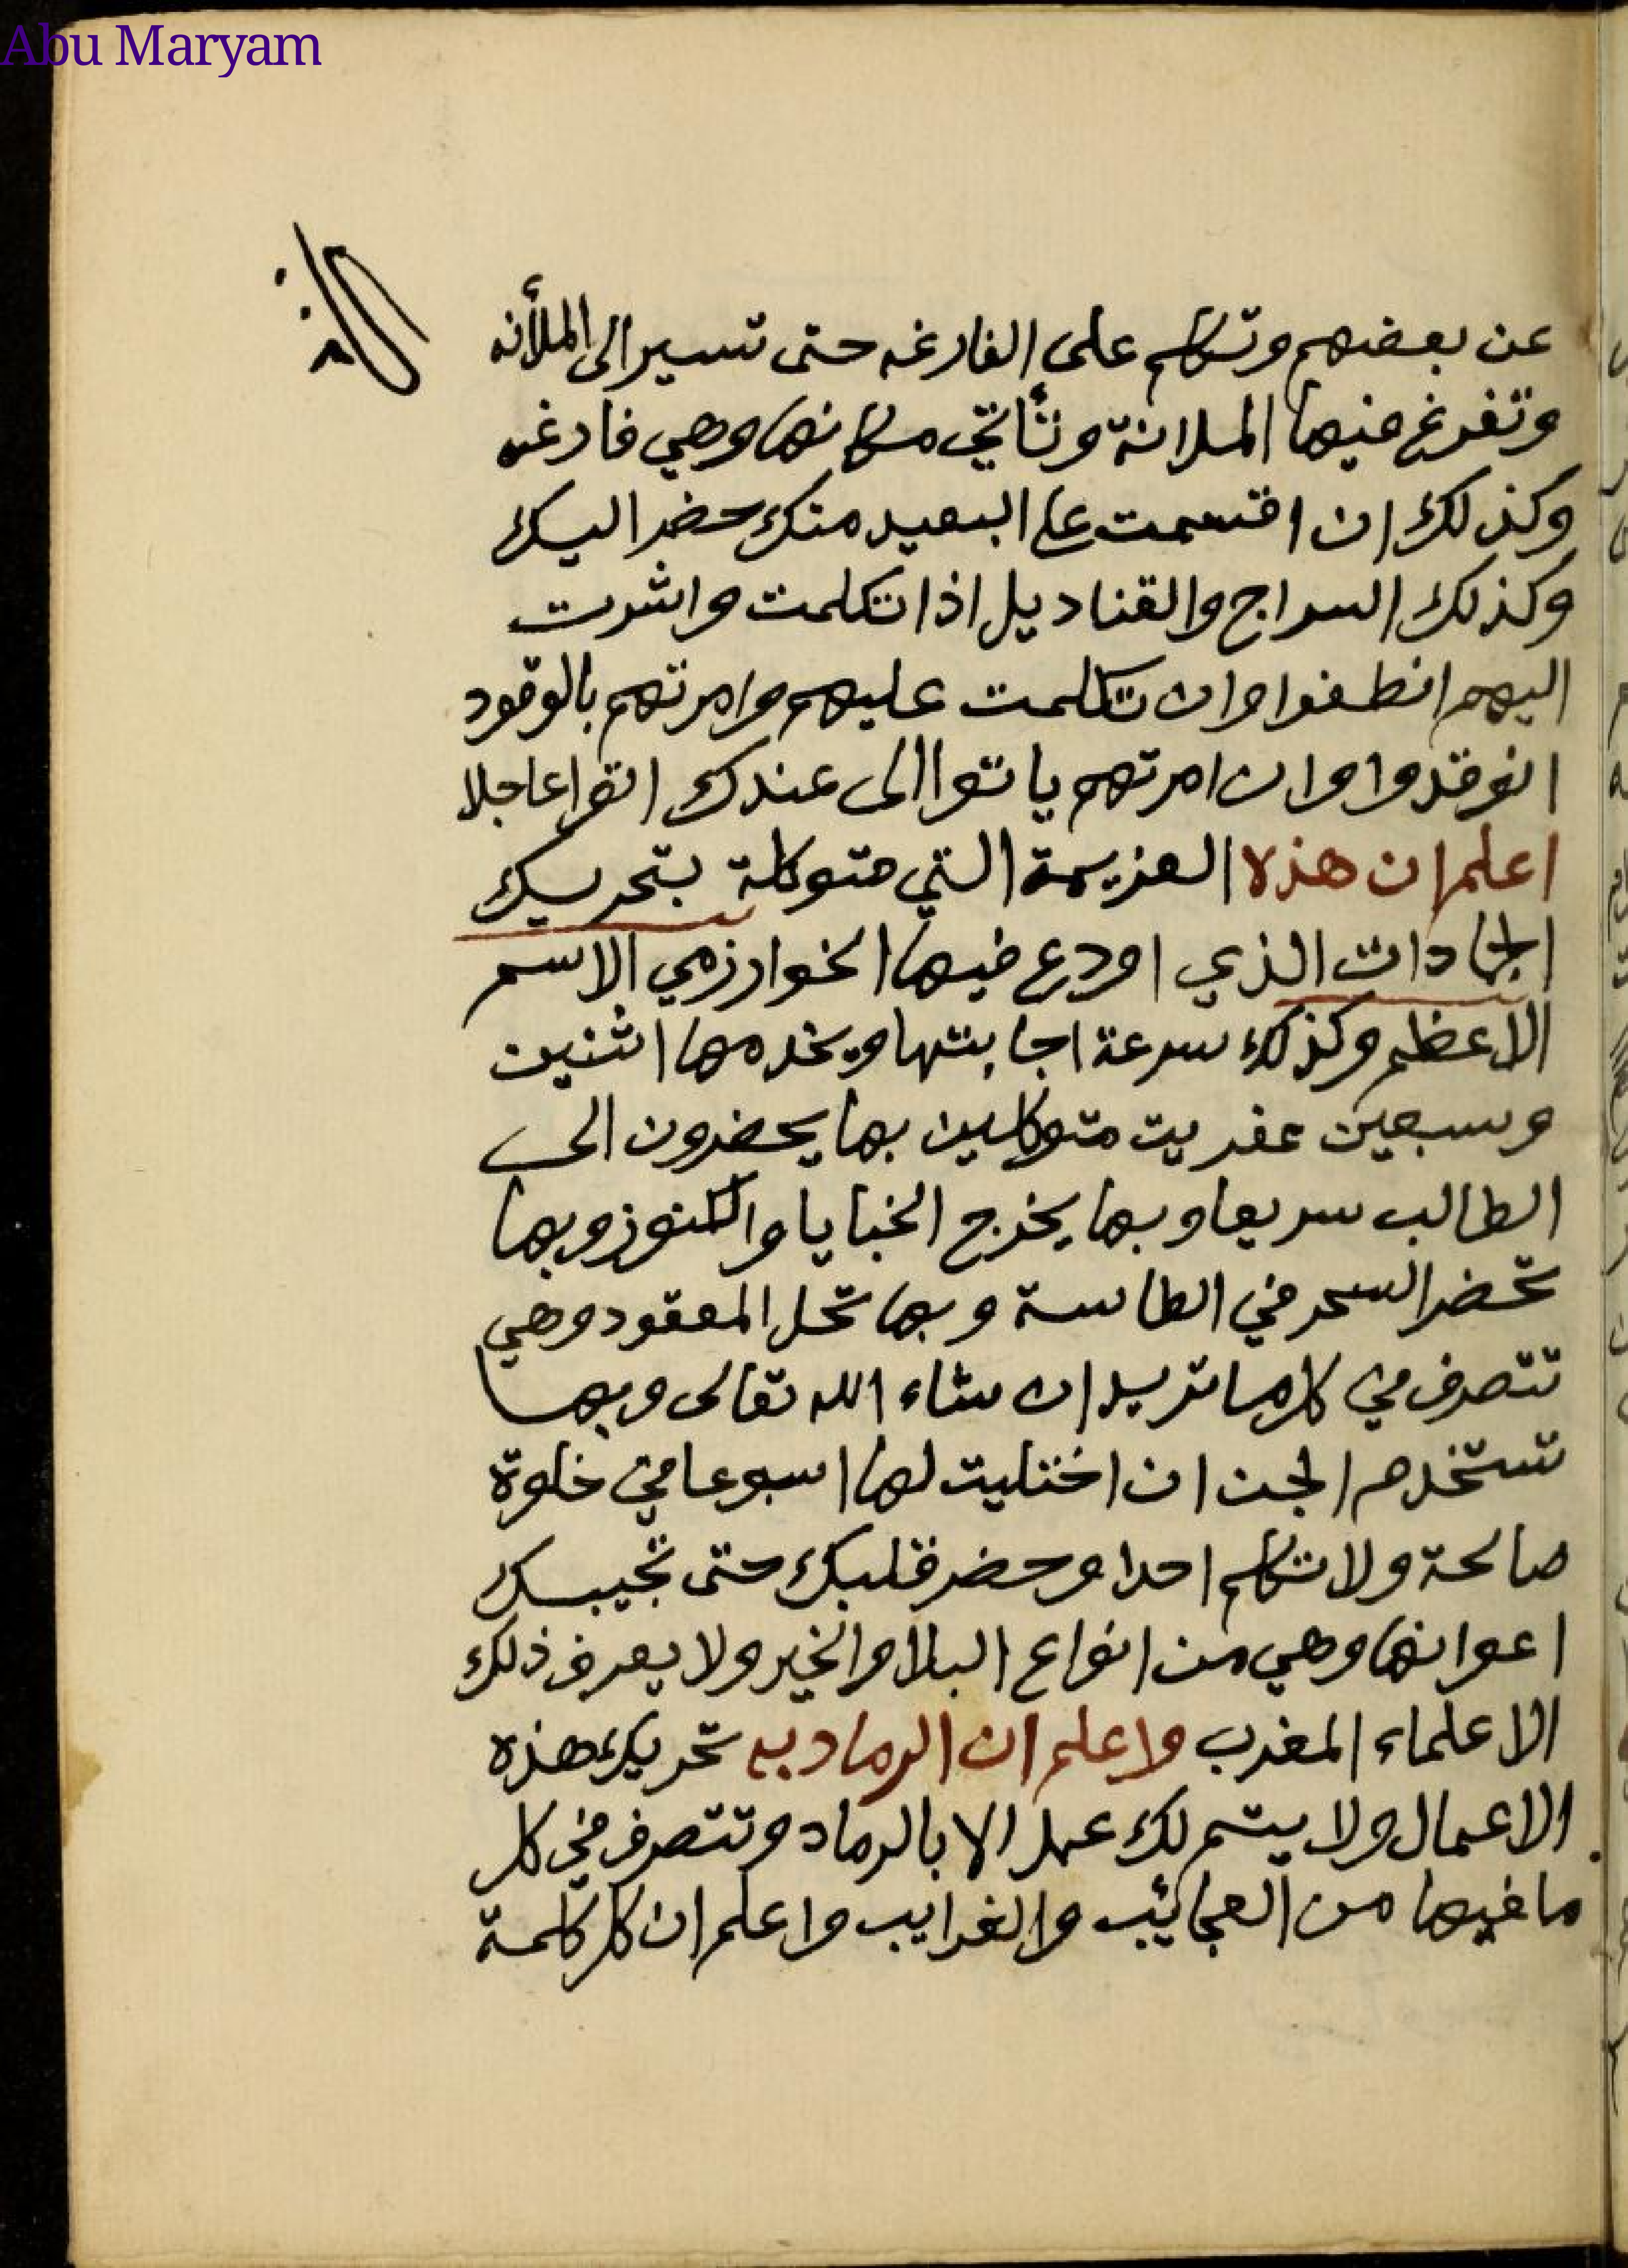 Abu Maryam
عن بعضهم وتتكلم على الفارغه حتى تسير الى الملأنه
وتفرغ فيها الملانة وتأتي مكانها وهي فارغه
وكذلك ان اقسمت على البعيد منك حضر اليك
وكذلك السراج والقناديل اذا تكلمت واشرت
اليهم انطفوا وان تكلمت عليهم وامرتهم بالوقود
انوقدوا وان امرتهم ياتوا الى عندك اتوا عاجلا
اعلم ان هذه العزيمة التي متوكلة بتحريك
الجمادات الذي اودع فيها الخوارزمي الاسم
الاعظم وكذلك سرعة اجابتها ويخدمها اثنين
وسبعين عفريت متوكلين بها يحضرون الى
الطالب سريعا وبها يخرج الخبايا والكنوز وبها
تحضر السحر في الطاسة وبها تحل المعقود وهي
تتصرف في كل ما تريد ان شاء الله تعالى وبها
تستخدم الجن ان اختليت لها اسبوعا في خلوة
صالحة ولا تتكلم احدا وحضر قلبك حتى تجيبك
اعوانها وهي من انواع البلا والخير ولا يعرف ذلك
الا علماء المغرب واعلم ان الرماد به تحريك هذه
الاعمال ولا يتم لك عمل الا بالرماد وتتصرف في كل
ما فيها من العجائب والغرايب واعلم ان كل كلمة